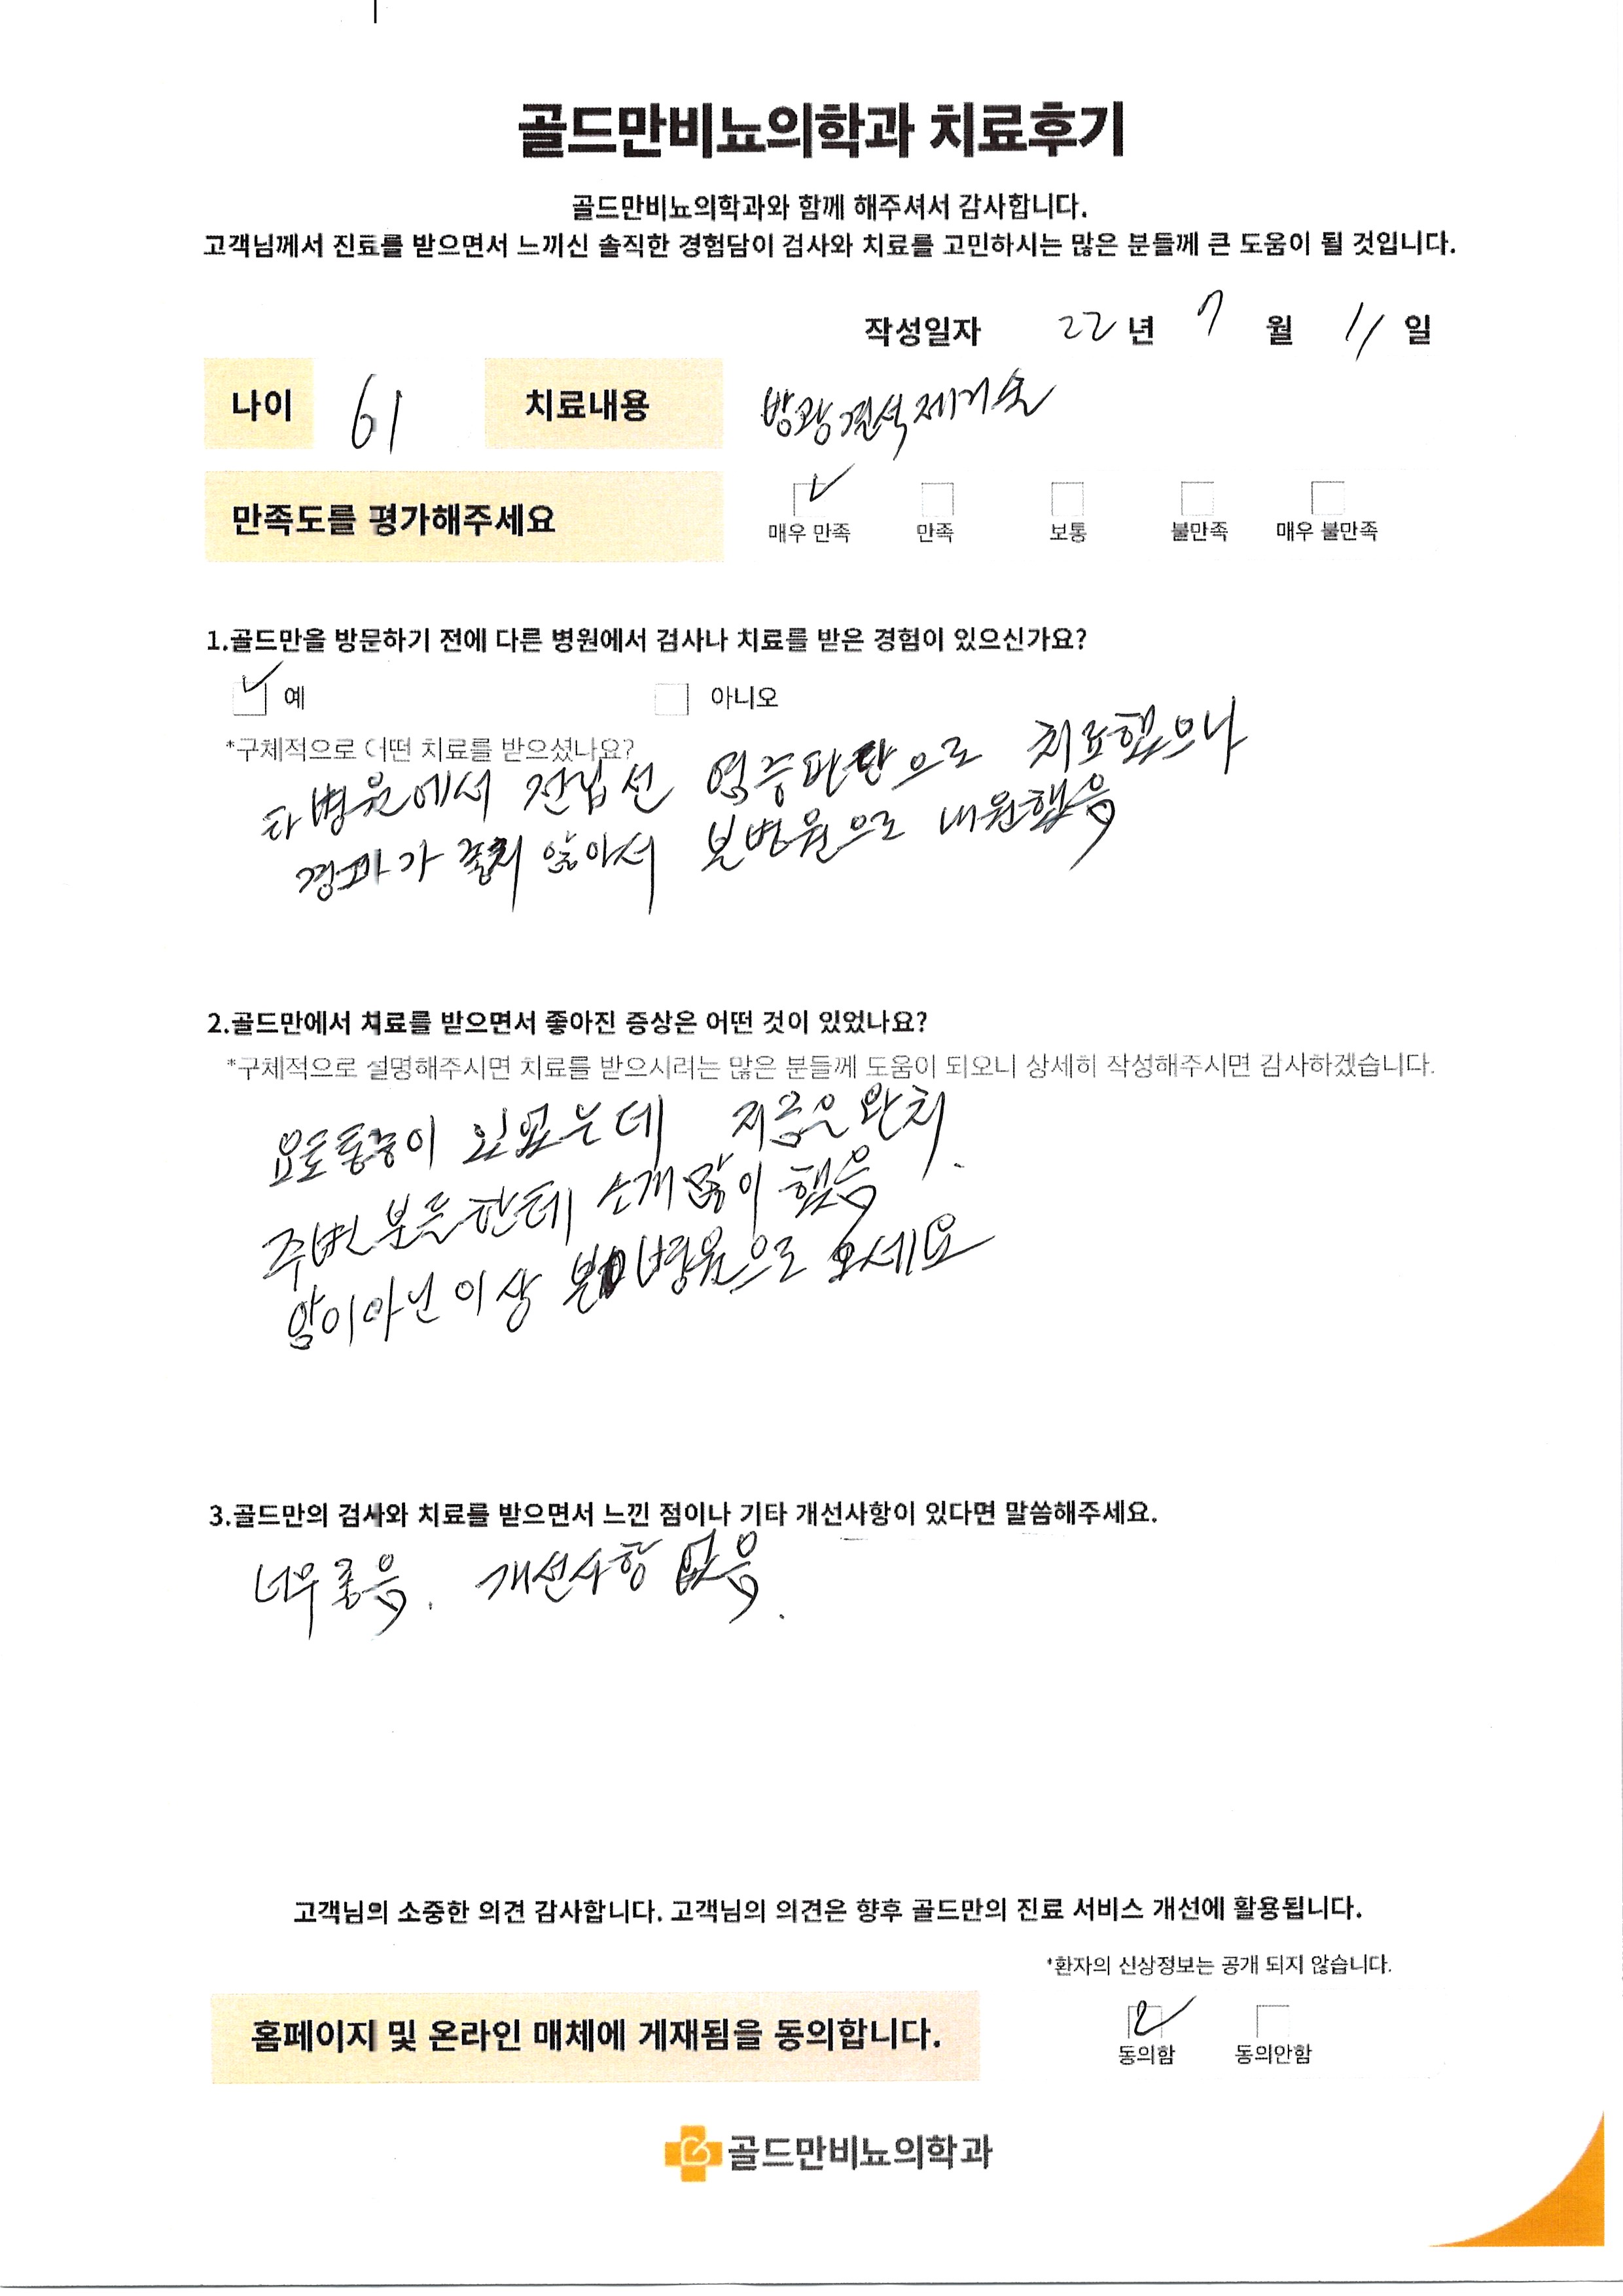 골드만비뇨의학과 치료후기
골드만비뇨의학과와 함께 해주셔서 감사합니다.
고객님께서 진료를 받으면서 느끼신 솔직한 경험담이 검사와 치료를 고민하시는 많은 분들께 큰 도움이 될 것입니다.
작성일자 22년 7월 11일
나이 61 치료내용 방광결석제거술
만족도를 평가해주세요
매우 만족 만족 보통 불만족 매우 불만족
1.골드만을 방문하기 전에 다른 병원에서 검사나 치료를 받은 경험이 있으신가요?
예 아니오
*구체적으로 어떤 치료를 받으셨나요?
타병원에서 전립선 염증판단으로 치료했으나
경과가 좋치 않아서 본병원으로 내원했음
2.골드만에서 치료를 받으면서 좋아진 증상은 어떤 것이 있었나요?
*구체적으로 설명해주시면 치료를 받으시려는 많은 분들께 도움이 되오니 상세히 작성해주시면 감사하겠습니다.
요도통증이 있었는데 지금은 완치.
주변 분들한테 소개 많이 했음
암이아닌이상 본 병원으로 오세요
3.골드만의 검사와 치료를 받으면서 느낀 점이나 기타 개선사항이 있다면 말씀해주세요.
너무좋음. 개선사항 없음.
고객님의 소중한 의견 감사합니다. 고객님의 의견은 향후 골드만의 진료 서비스 개선에 활용됩니다.
*환자의 신상정보는 공개 되지 않습니다.
홈페이지 및 온라인 매체에 게재됨을 동의합니다.
동의함 동의안함
골드만비뇨의학과